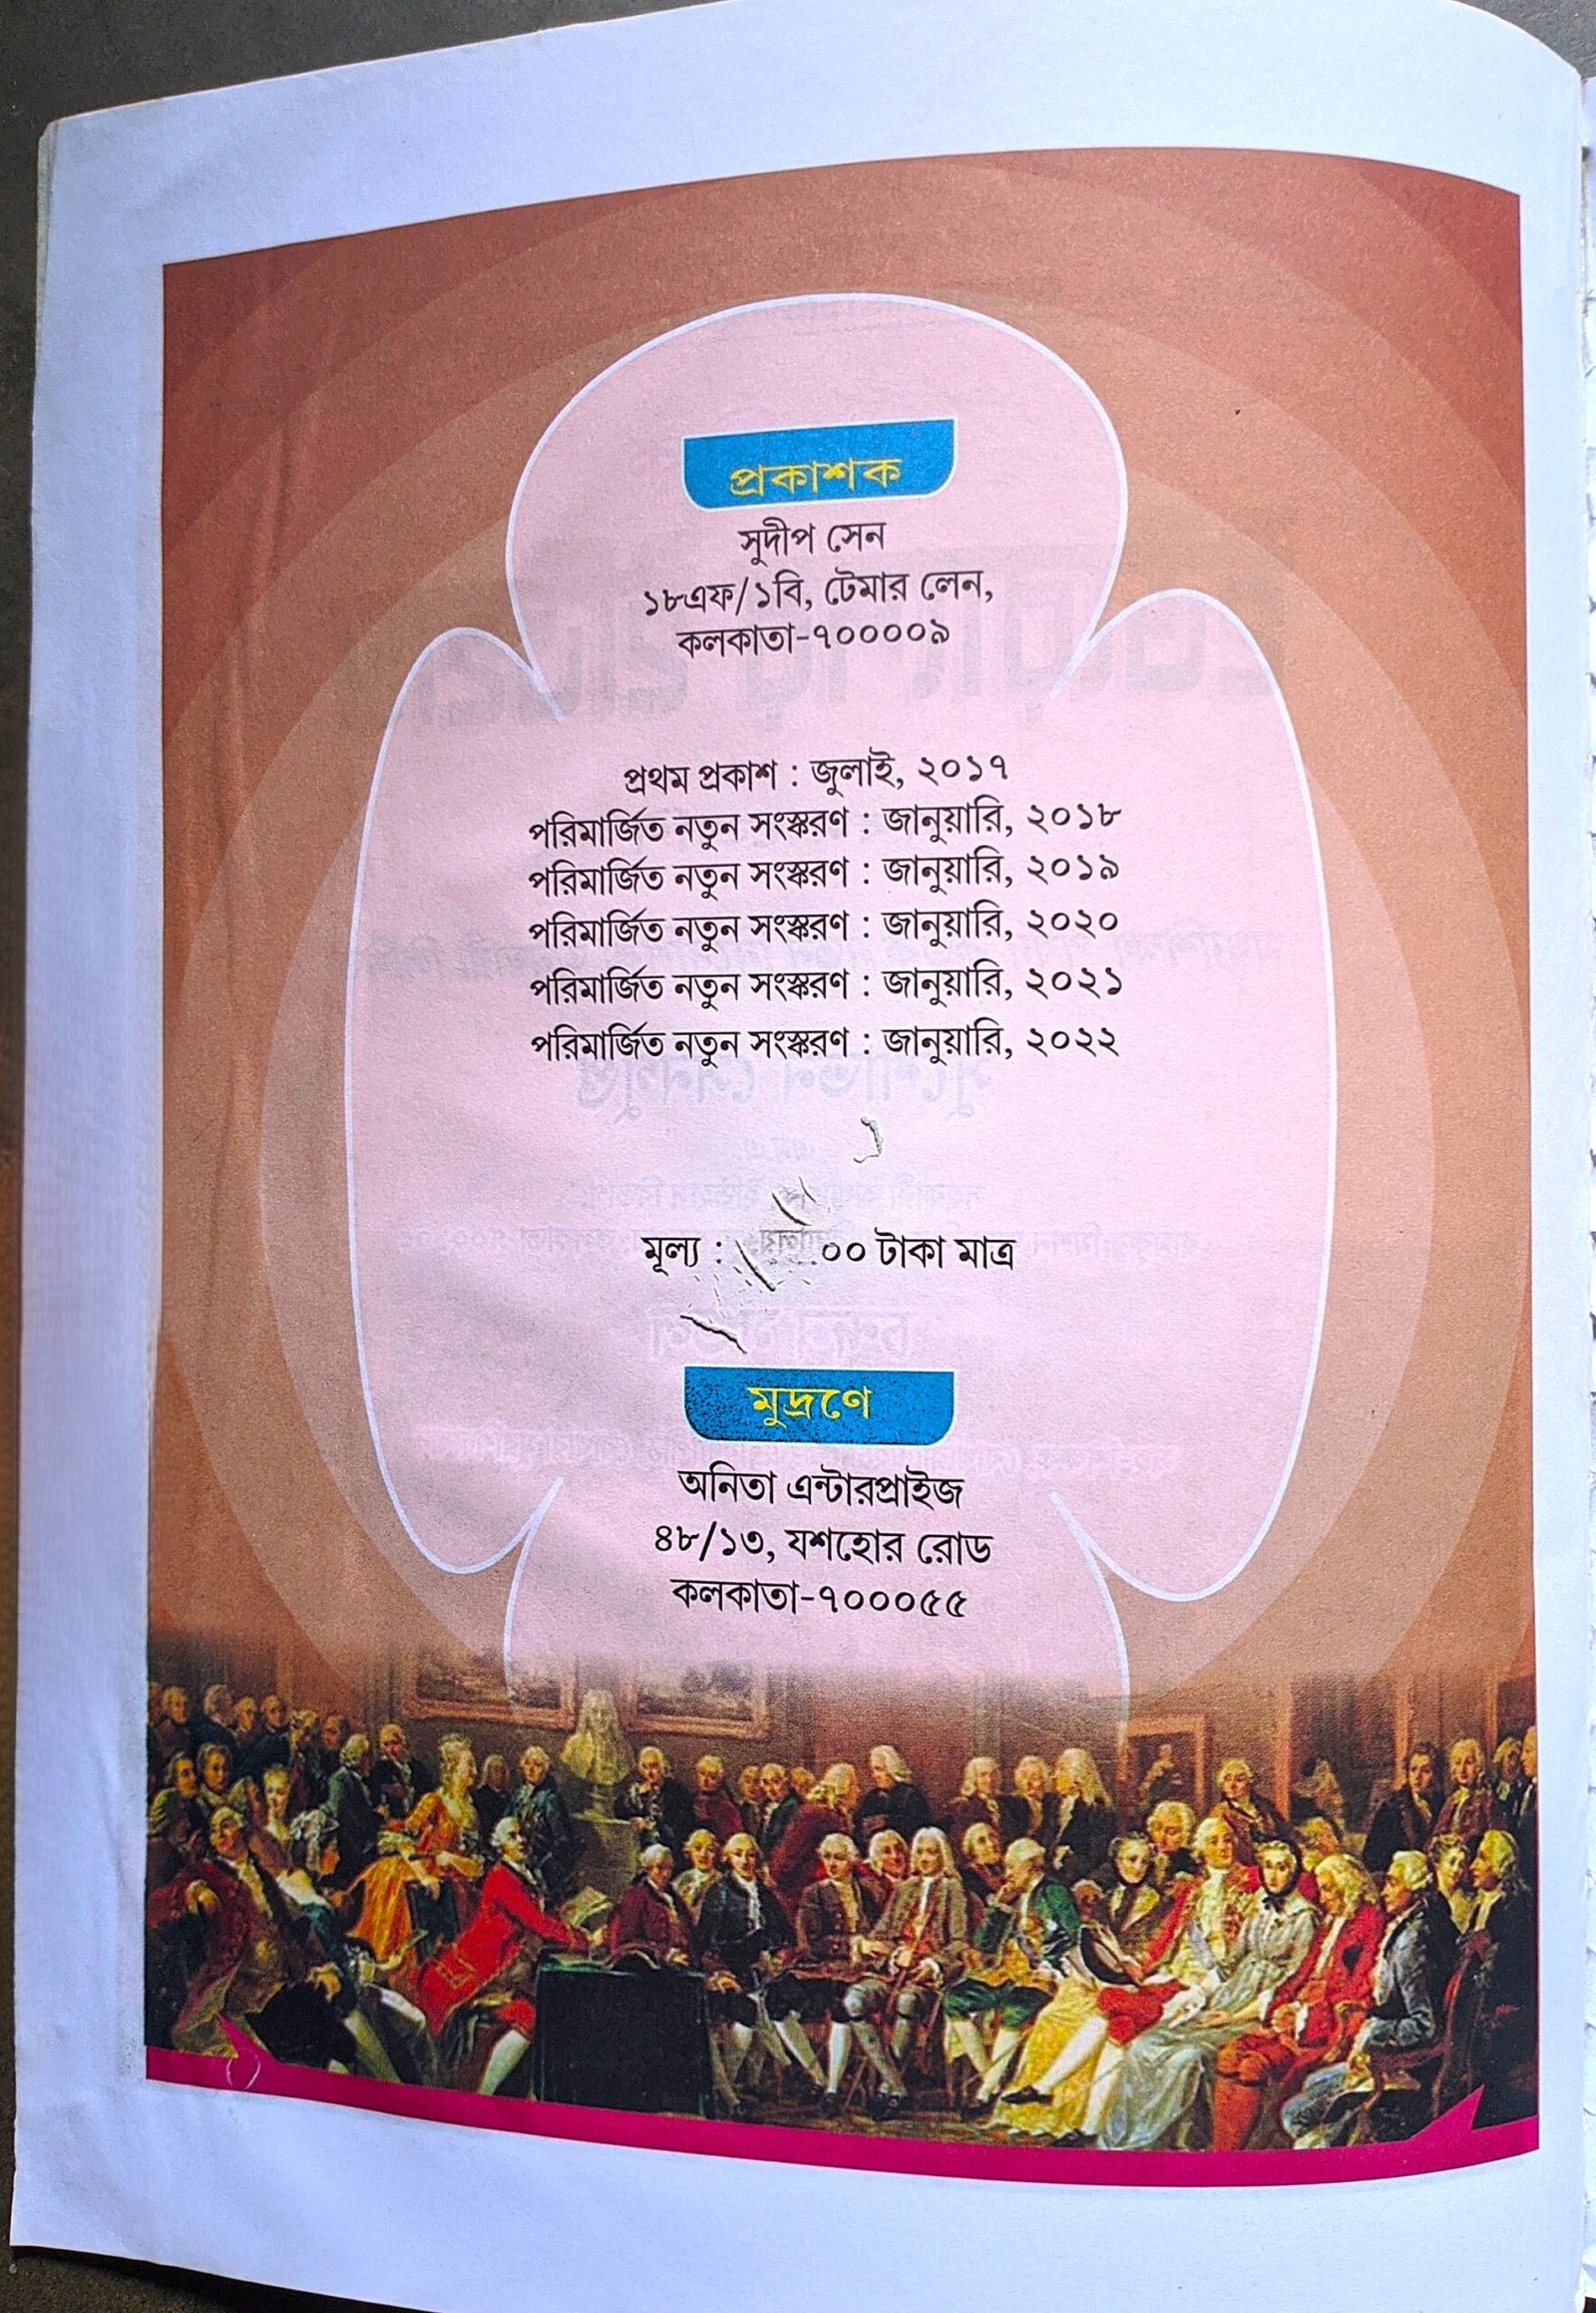 প্রকাশক
সুদীপ সেন
১৮এফ/১বি, টেমার লেন,
কলকাতা-৭০০০০৯
প্রথম প্রকাশ : জুলাই, ২০১৭
পরিমার্জিত নতুন সংস্করণ : জানুয়ারি, ২০১৮
পরিমার্জিত নতুন সংস্করণ : জানুয়ারি, ২০১৯
পরিমার্জিত নতুন সংস্করণ : জানুয়ারি, ২০২০
পরিমার্জিত নতুন সংস্করণ : জানুয়ারি, ২০২১
পরিমার্জিত নতুন সংস্করণ : জানুয়ারি, ২০২২
মূল্য : .০০ টাকা মাত্র
মুদ্রণে
অনিতা এন্টারপ্রাইজ
৪৮/১৩, যশহোর রোড
কলকাতা-৭০০০৫৫